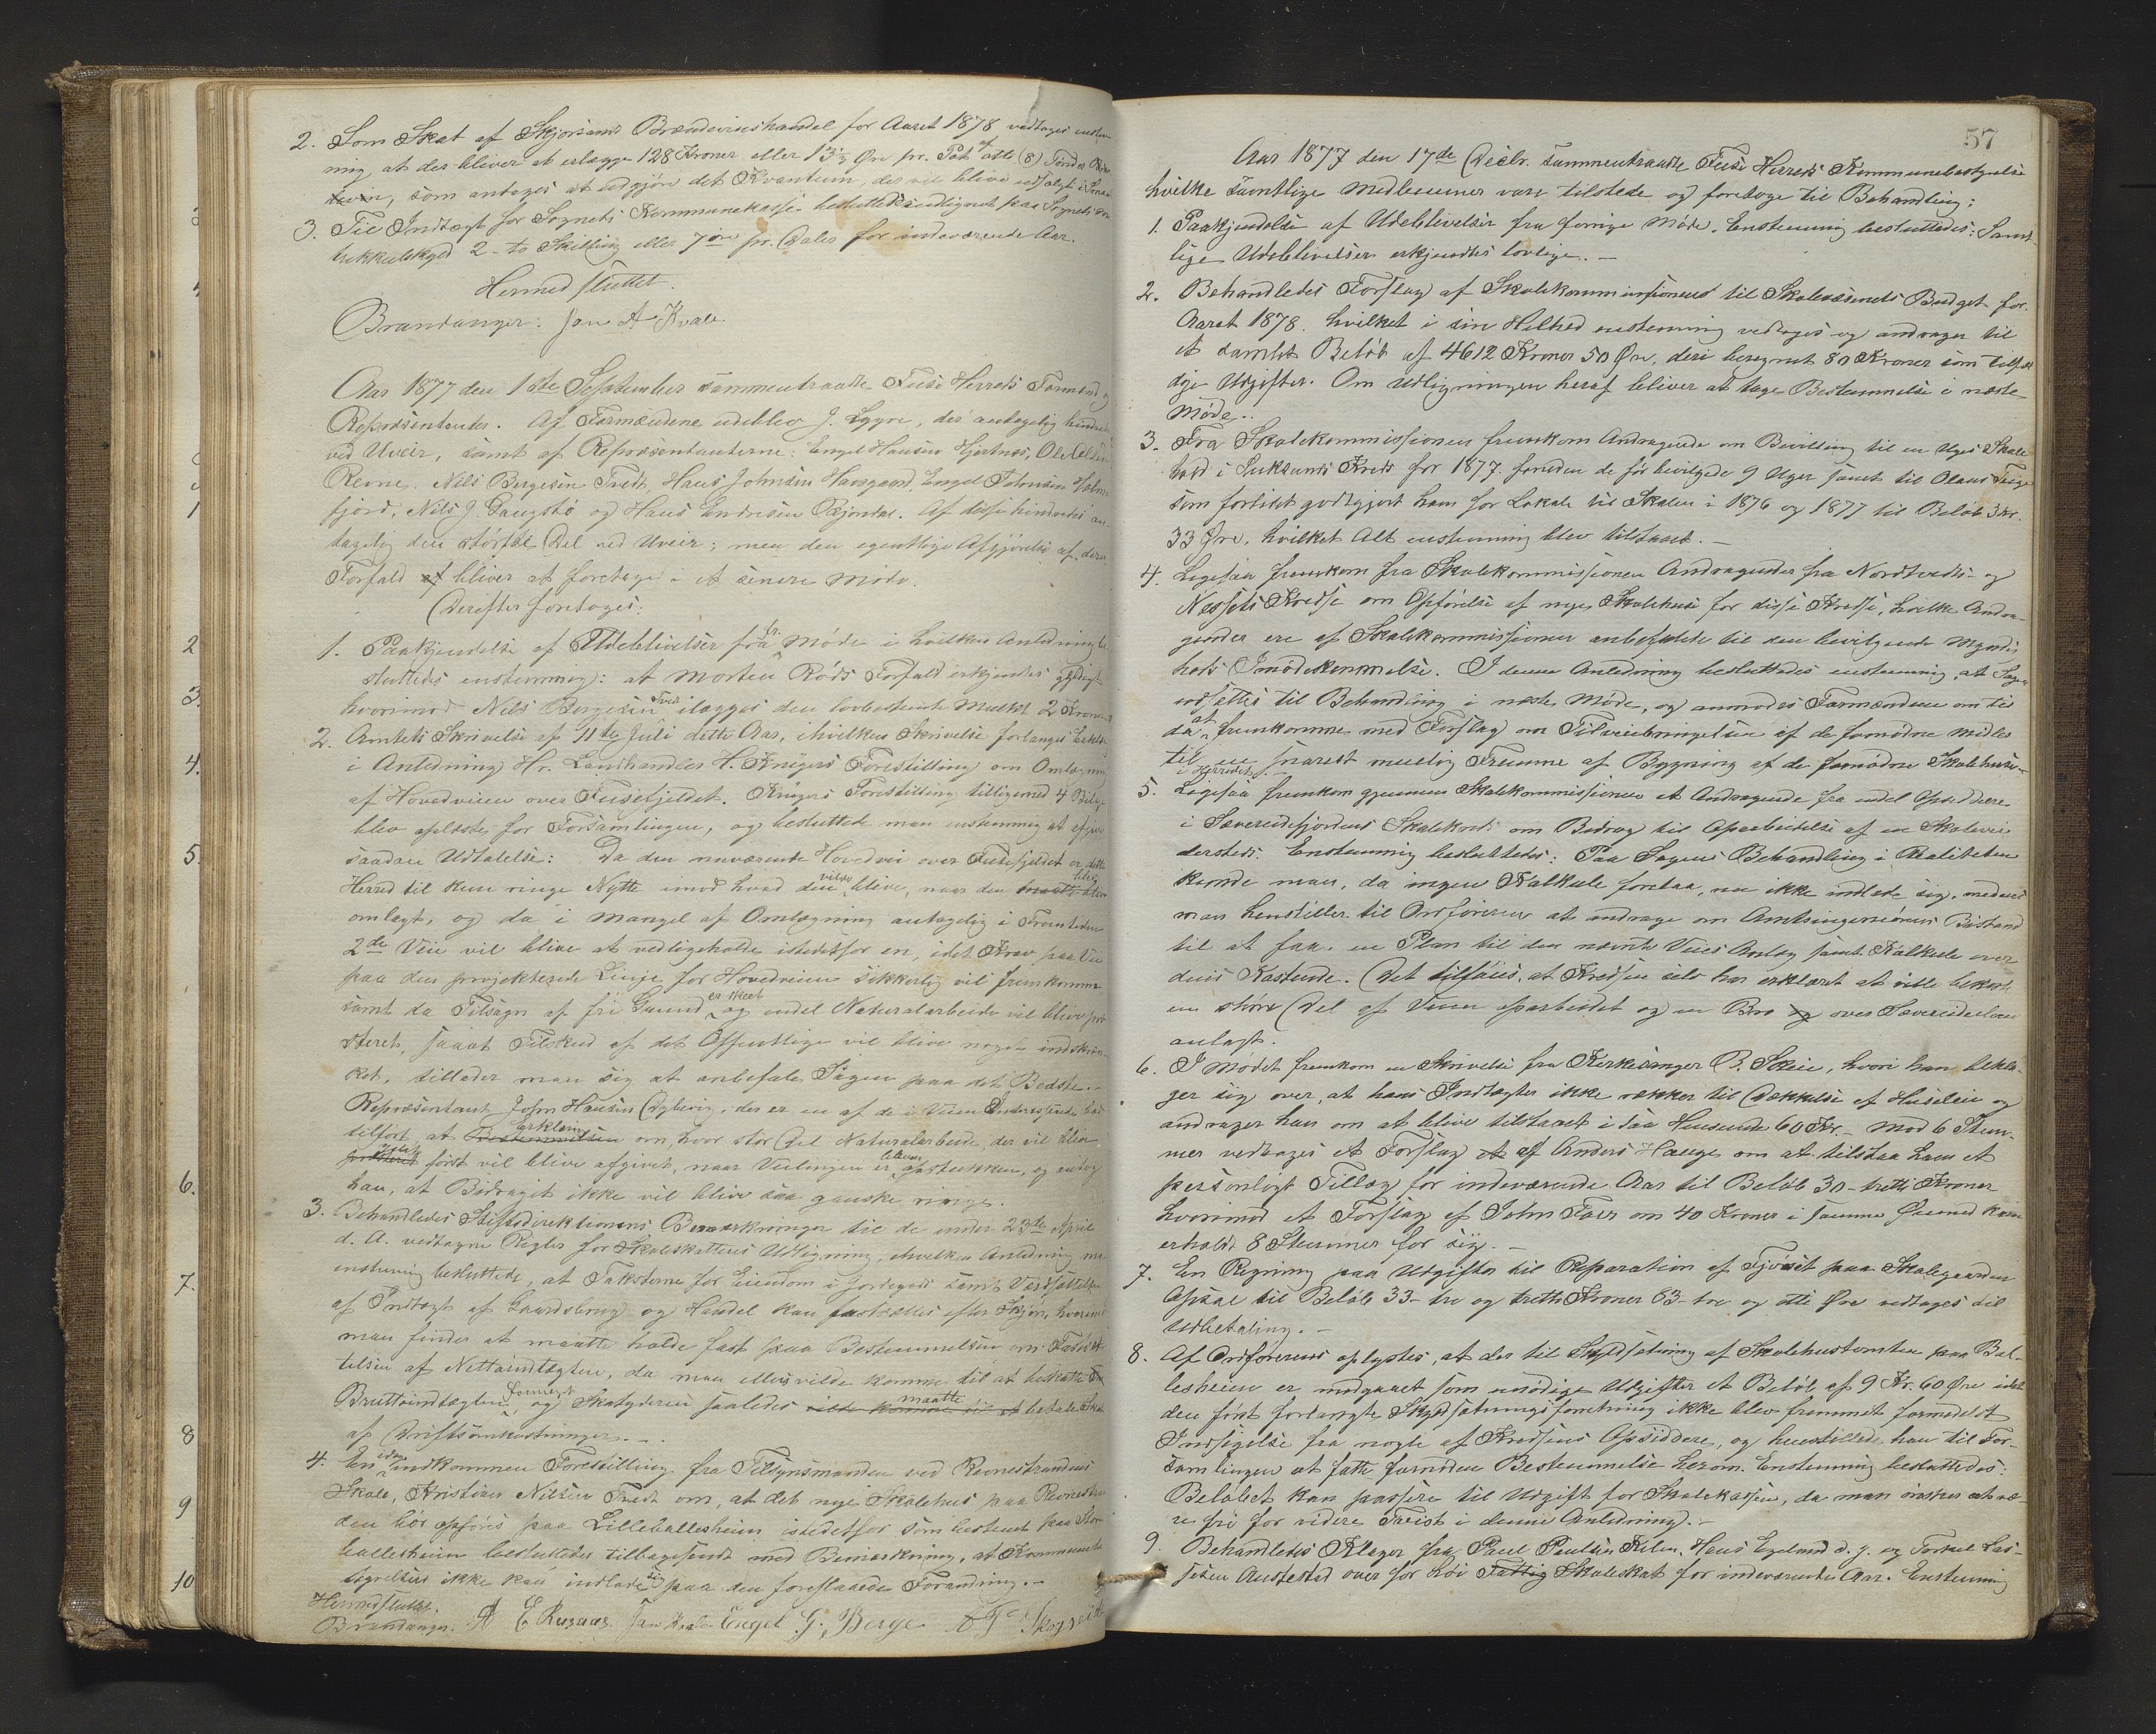 2. Som Skat af Skjorsands Brændevinshandel for Aaret 1878 vedtages enstem-
ning, at der bliver at erlægge 128 Kroner eller 13⅓ Øre pr. Pot af otte (8) Tønder
som antages at udgjøre det Kvantum, der vil blive udsolgt i
3. Til Indtægt for Sognets Kommunekasse besluttedes udlignet paa Sognets
trikkulskyld 2 - to Skilling eller 7 øre pr. Daler for indeværende Aar.
Hermed sluttet.
Brandanger. Jan A Kvale
Aar 1877 den 1ste September sammentraadte Fuse Herreds Formænd og
Repræsentanter. Af Formændene udeblev J. Lygre, der antagelig hindredes
ved Uveir, samt af Repræsentanterne: Engel Hansen Hjertnes, Ole
Revne, Nils Bergesen Tvedt, Hans Johnsen Havsgaard, Engel Johnsen Holm-
fjord, Nils J Gaugstø og Hans Endresen Bjordal. Af disse hindredes an-
tagelig den største Del ved Uveir; men den egentlige Afgjørelse af deres
Forfald bliver at foretage i et senere Møde.
Derefter foretoges:
1. Paakjendelse af Udeblivelser fra fr. Møde i hvilken Anledning be-
sluttedes enstemmig: at Morten Røds Forfald erkjendtes gyldigt
hvorimod Nils Bergesen Tvedt ilægges den lovbestemte Mulkt 2 Kroner
2. Amtets Skrivelse af 11te Juli dette Aar, i hvilken Skrivelse forlanges Erklæ
i Anledning Hr. Landhandler H. Krügers Forestilling om Omlægning
af Hovedveien over Fusefjeldet. Krügers Forestilling tilligemed 4 Bilag
blev oplæste for Forsamlingen, og besluttede man enstemmig at afgive
saadan Udtalelse: Da den nuværende Hovedvei over Fusefjeldet er dette
Herred til kun ringe Nytte imod hvad den vilde blive, naar den maatte blive
omlagt, og da i Mangel af Omlægning antagelig i Fremtiden
2de Veie vil blive at vedligeholde istedetfor en, idet Krav paa Vei
paa den projekterede Linje for Hovedveien sikkerlig vil fremkomme
samt da Tilsagn af fri Grund er skeet og endel Naturalarbeide vil blive præ-
steret, saaat Tilskud af det Offentlige vil blive noget indskræn-
ket, tillader man sig at anbefale Sagen paa det Bedste.-
Repræsentant John Hansen Dyhevig, der er en af de i Veien Interesserede
tilført, at Bestemmelsen Erklæring om, hvor stor Del Naturalarbeide, der vil blive
præsteret først vil blive afgivet, naar Veilengen er bleven opstukken, og antog
han, at Bidraget ikke vil blive saa ganske ringe.
3. Behandledes Stiftsdirektionens Bemærkninger til de under 23de April
d. A. vedtagne Regler for Skoleskattens Udligning, i hvilken Anledning man
enstemmig besluttede, at Taksterne for Eiendom i Jordegods samt Værdsættelsen
af Indtægt af Gaardsbrug og Handel kan fastsættes efter Skjøn, hvorimod
man finder at maatte holde fast paa Bestemmelsen om Fastsæt-
telsen af Nettoindtægten, da man ellers vilde komme til at beskatte
Bruttoindtægten, og Skatyderen saaledes vilde komme til at maatte betale Skat
af Driftsomkostninger.-
4. En indkommen Forestilling fra Tilsynsmanden ved Revnestrandens
Skole, Kristian Nilsen Tvedt om, at det nye Skolehus paa Revnestran-
den bør opføres paa Lilleballesheim istedetfor som bestemt paa Stor-
ballesheim besluttedes tilbagesendt med Bemærkning, at Kommunebe-
styrelsen ikke kan indlade sig paa den foreslaaede Forandring.-
Hermed sluttet.
Brandanger. A E Rusaas. Jan Kvale Engel G. Berge
57
Aar 1877 den 17de Decbr. sammentraadte Fuse Herreds Kommunebestyrelse
hvilke samtlige Medlemmer vare tilstede og foretoge til Behandling:
1. Paakjendelse af Udeblivelser fra forrige Møde. Enstemmig besluttedes: Samt-
lige Udeblivelser erkjendtes lovlige.-
2. Behandledes Forslag af Skolekommissionens til Skolevæsenets Budget for
Aaret 1878. hvilket i sin Helhed enstemmig vedtages og andrager til
et samlet Beløb af 4612 Kroner 50 Øre, deri beregnet 80 Kroner som tilfæl-
dige Udgifter. Om Udligningen heraf bliver at tage Bestemmelse i næste
Møde.
3. Fra Skolekommissionen fremkom Andragende om Bevilling til en Uges Skole-
hold i Suksunds Kreds for 1877. foruden de før bevilgede 9 Uger samt til Olaus
som forlidt godtgjort ham for Lokale til Skolen i 1876 og 1877 til Beløb 3 Kr.
33 Øre, hvilket Alt enstemmig blev tilstaaet.-
4. Ligesaa fremkom fra Skolekommissionen Andragender fra Nordtvedts- og
Næssets Kredse om Opførelse af nye Skolehuse for disse Kredse, hvilke Andra-
gender ere af Skolekommissionen anbefalede til den bevilgende Myndig-
heds Imødekommelse. I denne Anledning besluttedes enstemmig, at Sagen
udsættes til Behandling i næste Møde, og anmodes Formændene om til
da at fremkomme med Forslag om Tilveiebringelsen af de fornødne Midler
til en snarest muelig Fremme af Bygning af de fornødne Skolehuse
i Herredet.-
5. Ligesaa fremkom gjennem Skolekommissionen et Andragende fra endel Opsiddere
i Sævereidefjordens Skolekreds om Bidrag til Oparbeidelse af en Skolevei
dersteds. Enstemmig besluttedes: Paa Sagens Behandling i Realiteten
kunde man, da ingen Kalkule forelaa, nu ikke indlade sig, medens
man henstiller til Ordføreren at andrage om Amtsingeniørens Bistand
til at faa en Plan til den nævnte Veies Anlæg samt Kalkule over
dens Kostende. Det tilføies, at Kredsen selv har erklæret at ville bekoste
en større Del af Veien oparbeidet og en Bro over Sævereideelven
anlagt.
6. I Mødet fremkom en Skrivelse fra Kirkesanger B. Skeie, hvori han bekla-
ger sig over, at hans Indtægter ikke rækker til Dækkelse af Husleie og
andrager han om at blive tilstaaet i saa Henseende 60 Kr.- Mod 6 Stem-
mer vedtages et Forslag af Anders Hauge om at tilstaa ham et
personligt Tillæg for indeværende Aar til Beløb 30 - tretti Kroner
hvorimod et Forslag af John Foer om 40 Kroner i samme Øiemed kun
erholdt 8 Stemmer for sig.-
7. En Regning paa Udgifter til Reparation af Fjøset paa Skolegaarden
Opsal til Beløb 33 - tre og tretti Kroner 63 - tre og Øre vedtages til
Udbetaling.-
8. Af Ordføreren oplystes, at der til Skyldsætning af Skolehustomten paa Bal-
lesheim er medgaaet som unødige Udgifter et Beløb af 9 Kr. 60 Øre idet
den først forlangte Skyldsætningsforretning ikke blev fremmet formedelst
Indsigelse fra nogle af Kredsens Opsiddere, og henstillede han til For-
samlingen at fatte fornøden Bestemmelse herom. Enstemmig besluttedes:
Beløbet kan passere til Udgift for Skolekassen, da man ønsker at væ-
re fri for videre Tvist i denne Anledning.-
9. Behandledes Klager fra Poul Poulsen Kilen, Hans Egeland d. y. og Torkel Las-
sesen Austestad over for høi Fattig Skoleskat for indeværende Aar. Enstemmig
2
3.
4.
5.
6.
7.
8
9
10